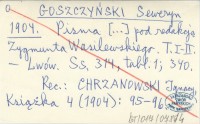 GOSZCZYŃSKI Seweryn
1904. Pisma [...] pod redakcją
Zygmunta Wasilewskiego. T. I-II.
– Lwów. Ss, 314, tabl. 1; 340.
Rec.: CHRZANOWSKI Ignacy,
Książka 4 (1904): 95-96.